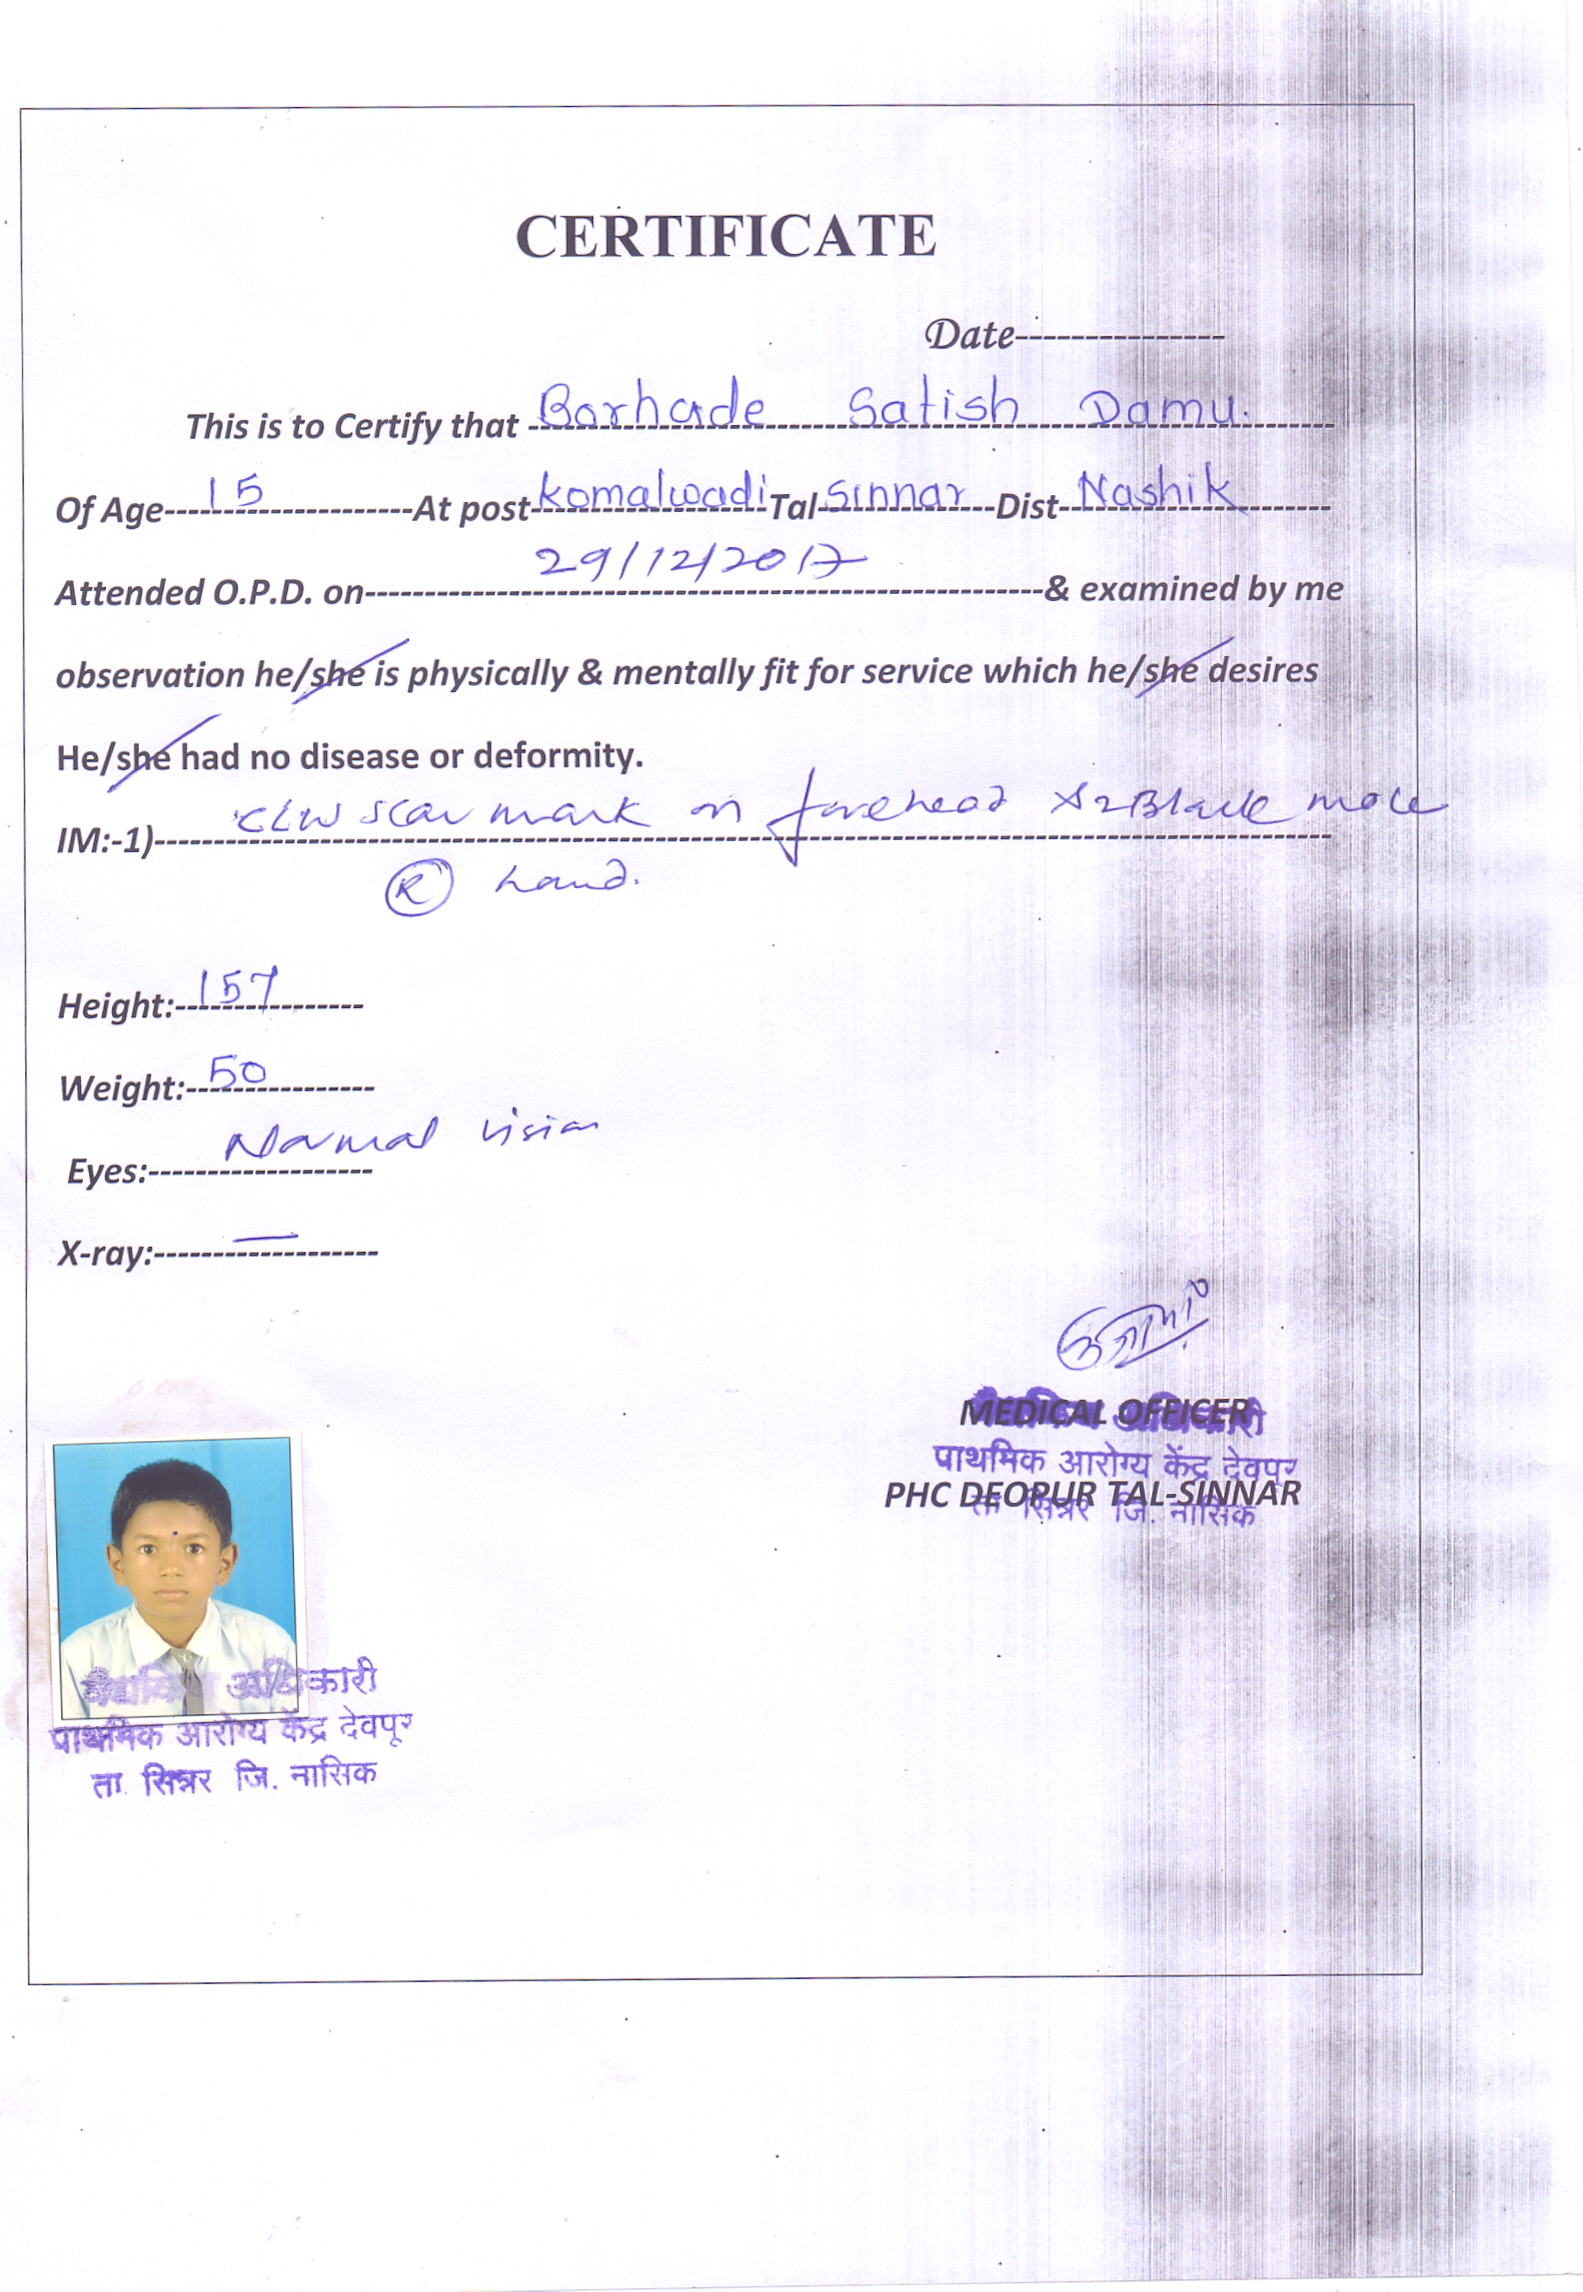 CERTIFICATE
Date---------------
This is to Certify that Barhade Satish Damu.
Of Age 15 At post Komalwadi Tal Sinnar Dist Nashik
Attended O.P.D. on 29/12/2017 & examined by me
observation he/she is physically & mentally fit for service which he/she desires
He/she had no disease or deformity.
IM:-1) CLW scar mark on forehead & 2 Black mole
(R) hand.
Height: 157
Weight: 50
Eyes: Normal vision
X-ray: —
MEDICAL OFFICER
अधिकारी
पाथमिक आरोग्य केंद्र देवपूर
PHC DEOPUR TAL-SINNAR
ता सिन्नर जि. नासिक
अधिकारी
पाथमिक आरोग्य केंद्र देवपूर
ता. सिन्नर जि. नासिक